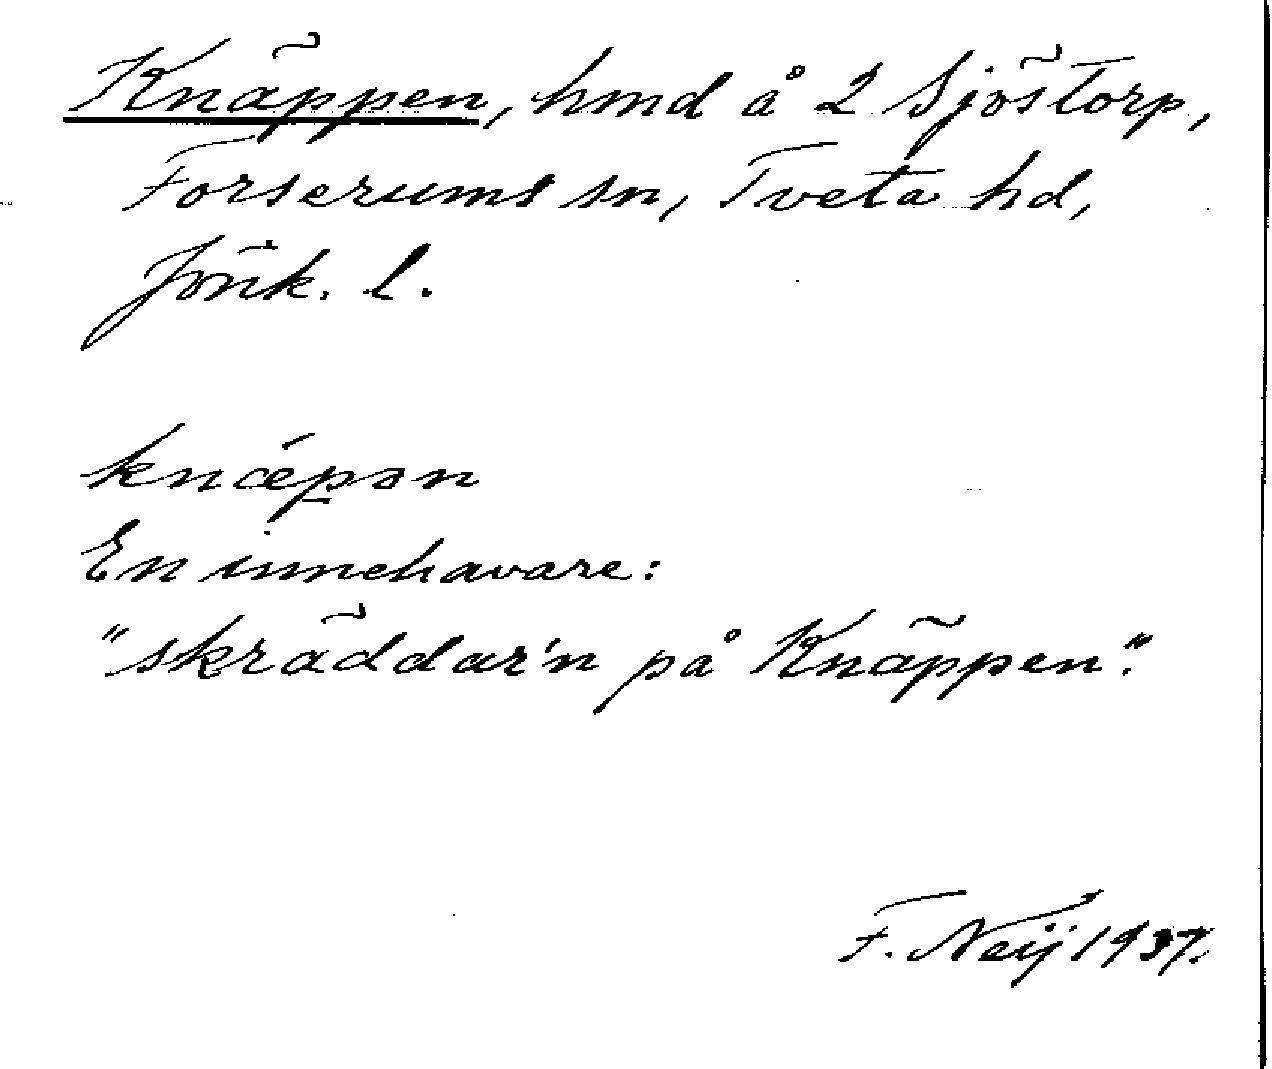 Knäppen, hmd å 2 Sjöstorp,
Forserums sn, Tveta hd,
Jönk. l.
knǽp̲ən
En innehavare:
"skräddar'n på Knäppen".
F. Neij 1937.